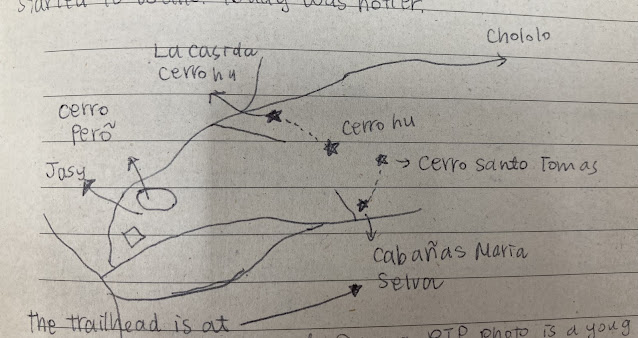 started to
today was hotter.
Chololo
La casida
cerro hu
cerro
però
cerro hu
Jasy
Cerro Santo Tomas
Cabañas Maria
Selva
the trailhead is at
photo is a youg